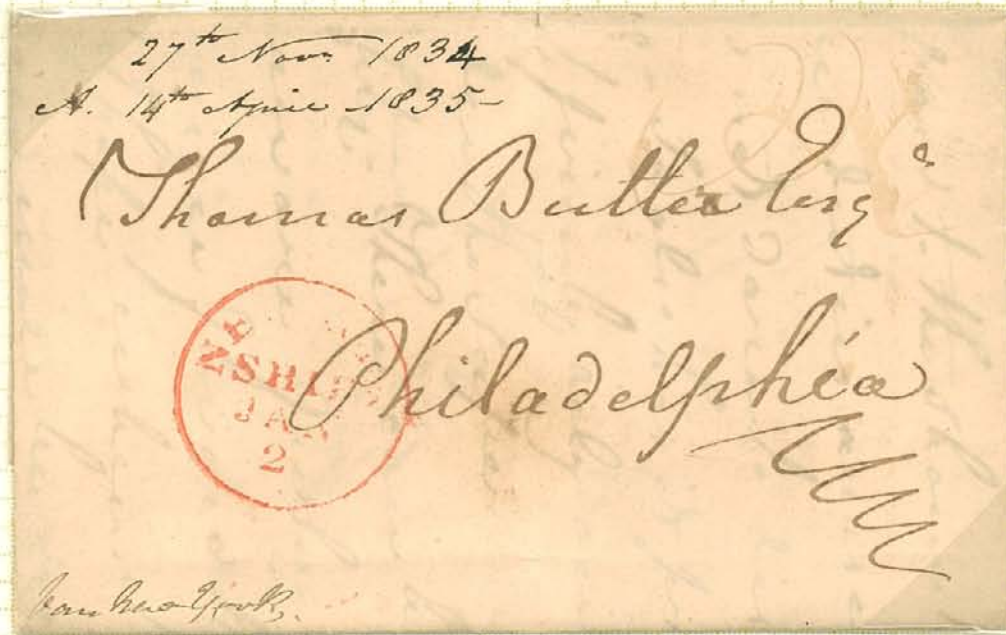 27th Nov. 1834
A. 14th April 1835-
Thomas Butler Esq
Philadelphia
NE
SHIP
JAN
2
New York.